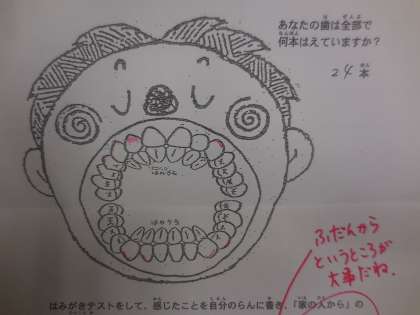 あなたの歯は全部で
何本はえていますか?
24本
ふだんから
というところが
大事だね。
はみがきテストをして、感じたことを自分のらんに書き、「家の人から」の